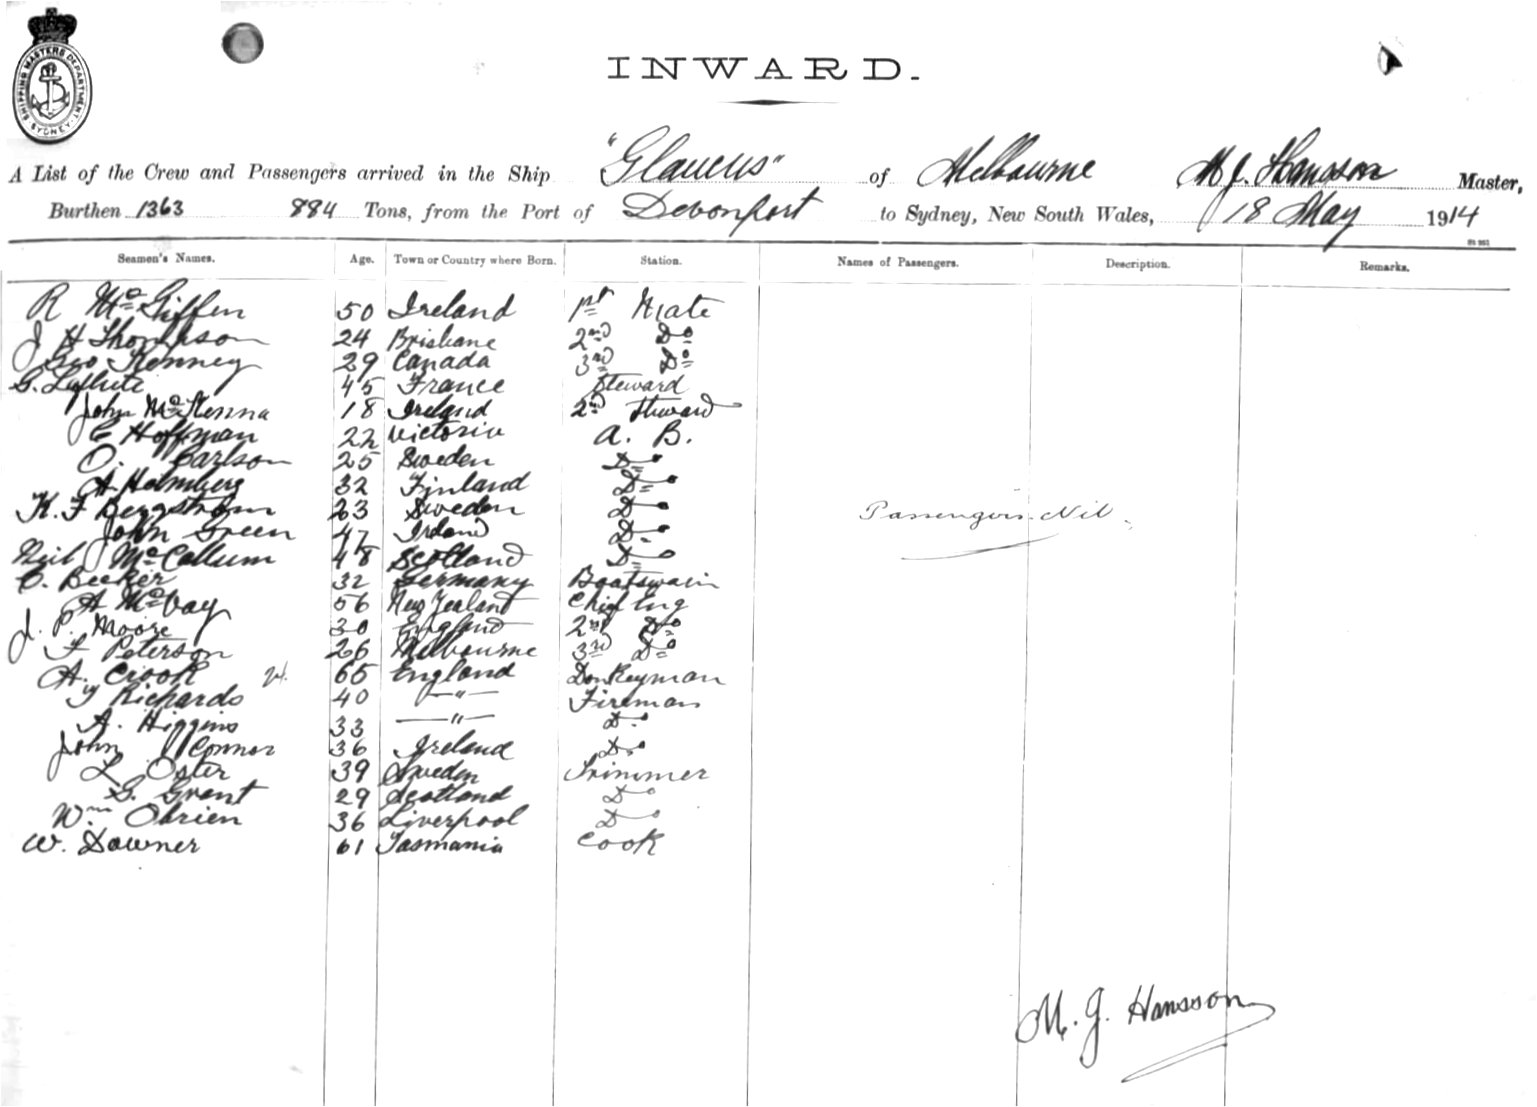 SHIPPING MASTERS DEPARTMENT SYDNEY
INWARD.
A List of the Crew and Passengers arrived in the Ship "Glaucus" of Melbourne M J. Hansson Master,
Burthen 1363 884 Tons, from the Port of Devonport to Sydney, New South Wales, 18 May 1914
Seamen's Names. Age. Town or Country where Born. Station. Names of Passengers. Description. Remarks.
R McGiffen 50 Ireland 1st Mate
J H Thompson 24 Brisbane 2nd Do
Geo Kenney 29 Canada 3rd Do
G. 45 France Steward
John McKenna 18 Ireland 2nd Steward
C Hoffman 22 Victoria A. B.
O. Carlson 25 Sweden Do
A Holmberg 32 Finland Do
K. F Bergstrom 23 Sweden Do Passengers Nil
John Green 47 Ireland Do
Neil McCallum 48 Scotland Do
C. Becker 32 Germany Boatswain
A McVay 56 New Zealand Chief Eng
J. P. Moore 30 England 2nd Do
F Peterson 26 Melbourne 3rd Do
A. Crook 65 England Donkeyman
Richards 40 —"— Fireman
A. Higgins 33 —"— Do
John OConnor 36 Ireland Do
L Oster 39 Sweden Trimmer
G. Grant 29 Scotland Do
Wm Obrien 36 Liverpool Do
W. Downer 61 Tasmania Cook
M. J. Hansson